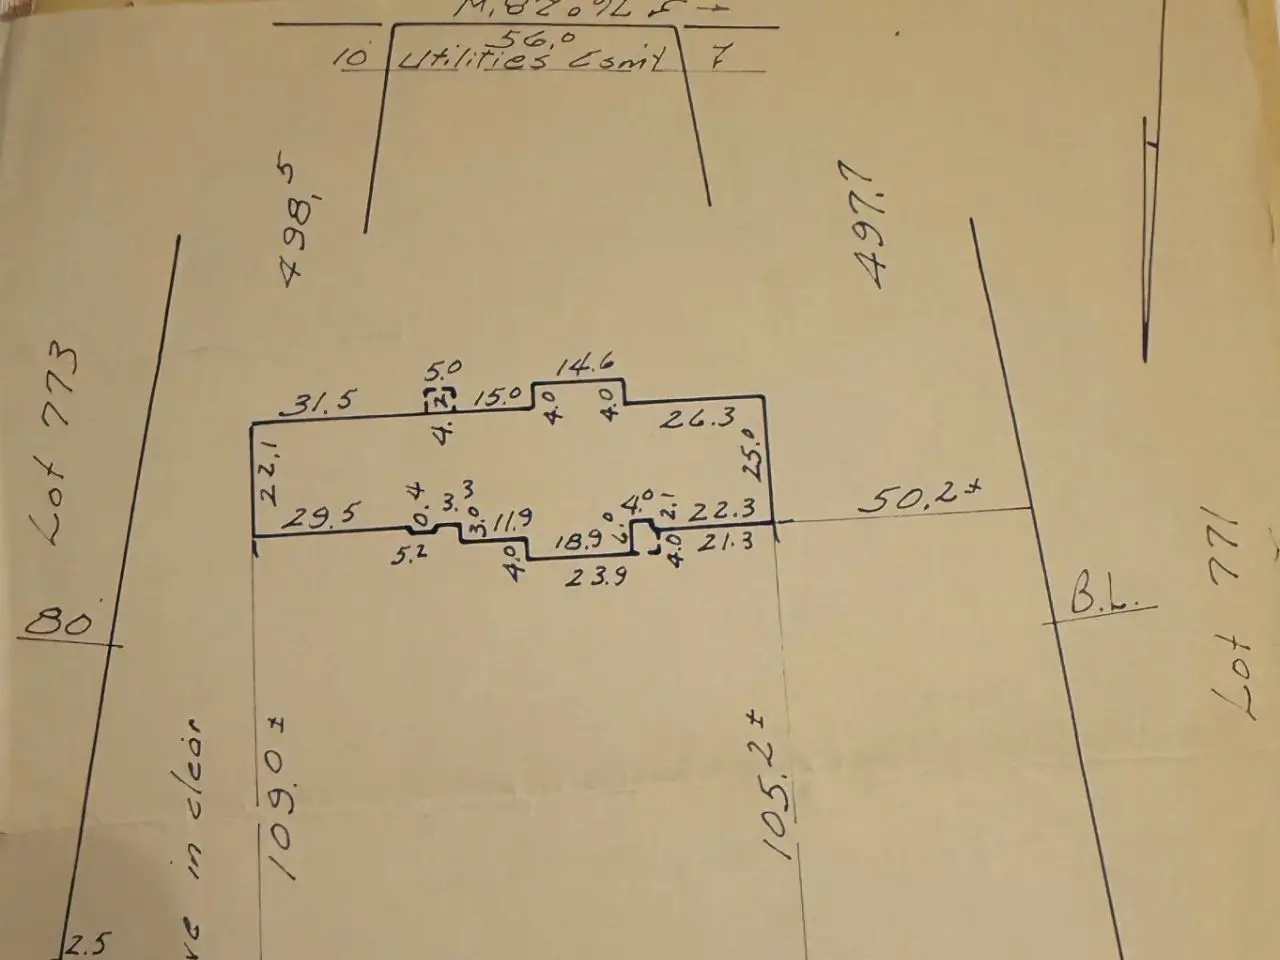 56.0
10 Utilities Esm't 7
498.5
497.7
Lot 773
Lot 771
5.0
14.6
31.5
4.2
15.0
4.0
4.0
26.3
22.1
25.0
29.5
0.4
3.3
3.0
11.9
4.0
2.1
22.3
50.2±
5.2
4.0
18.9
6.0
4.0
21.3
23.9
80.
B.L.
109.0±
105.2±
in clear
2.5